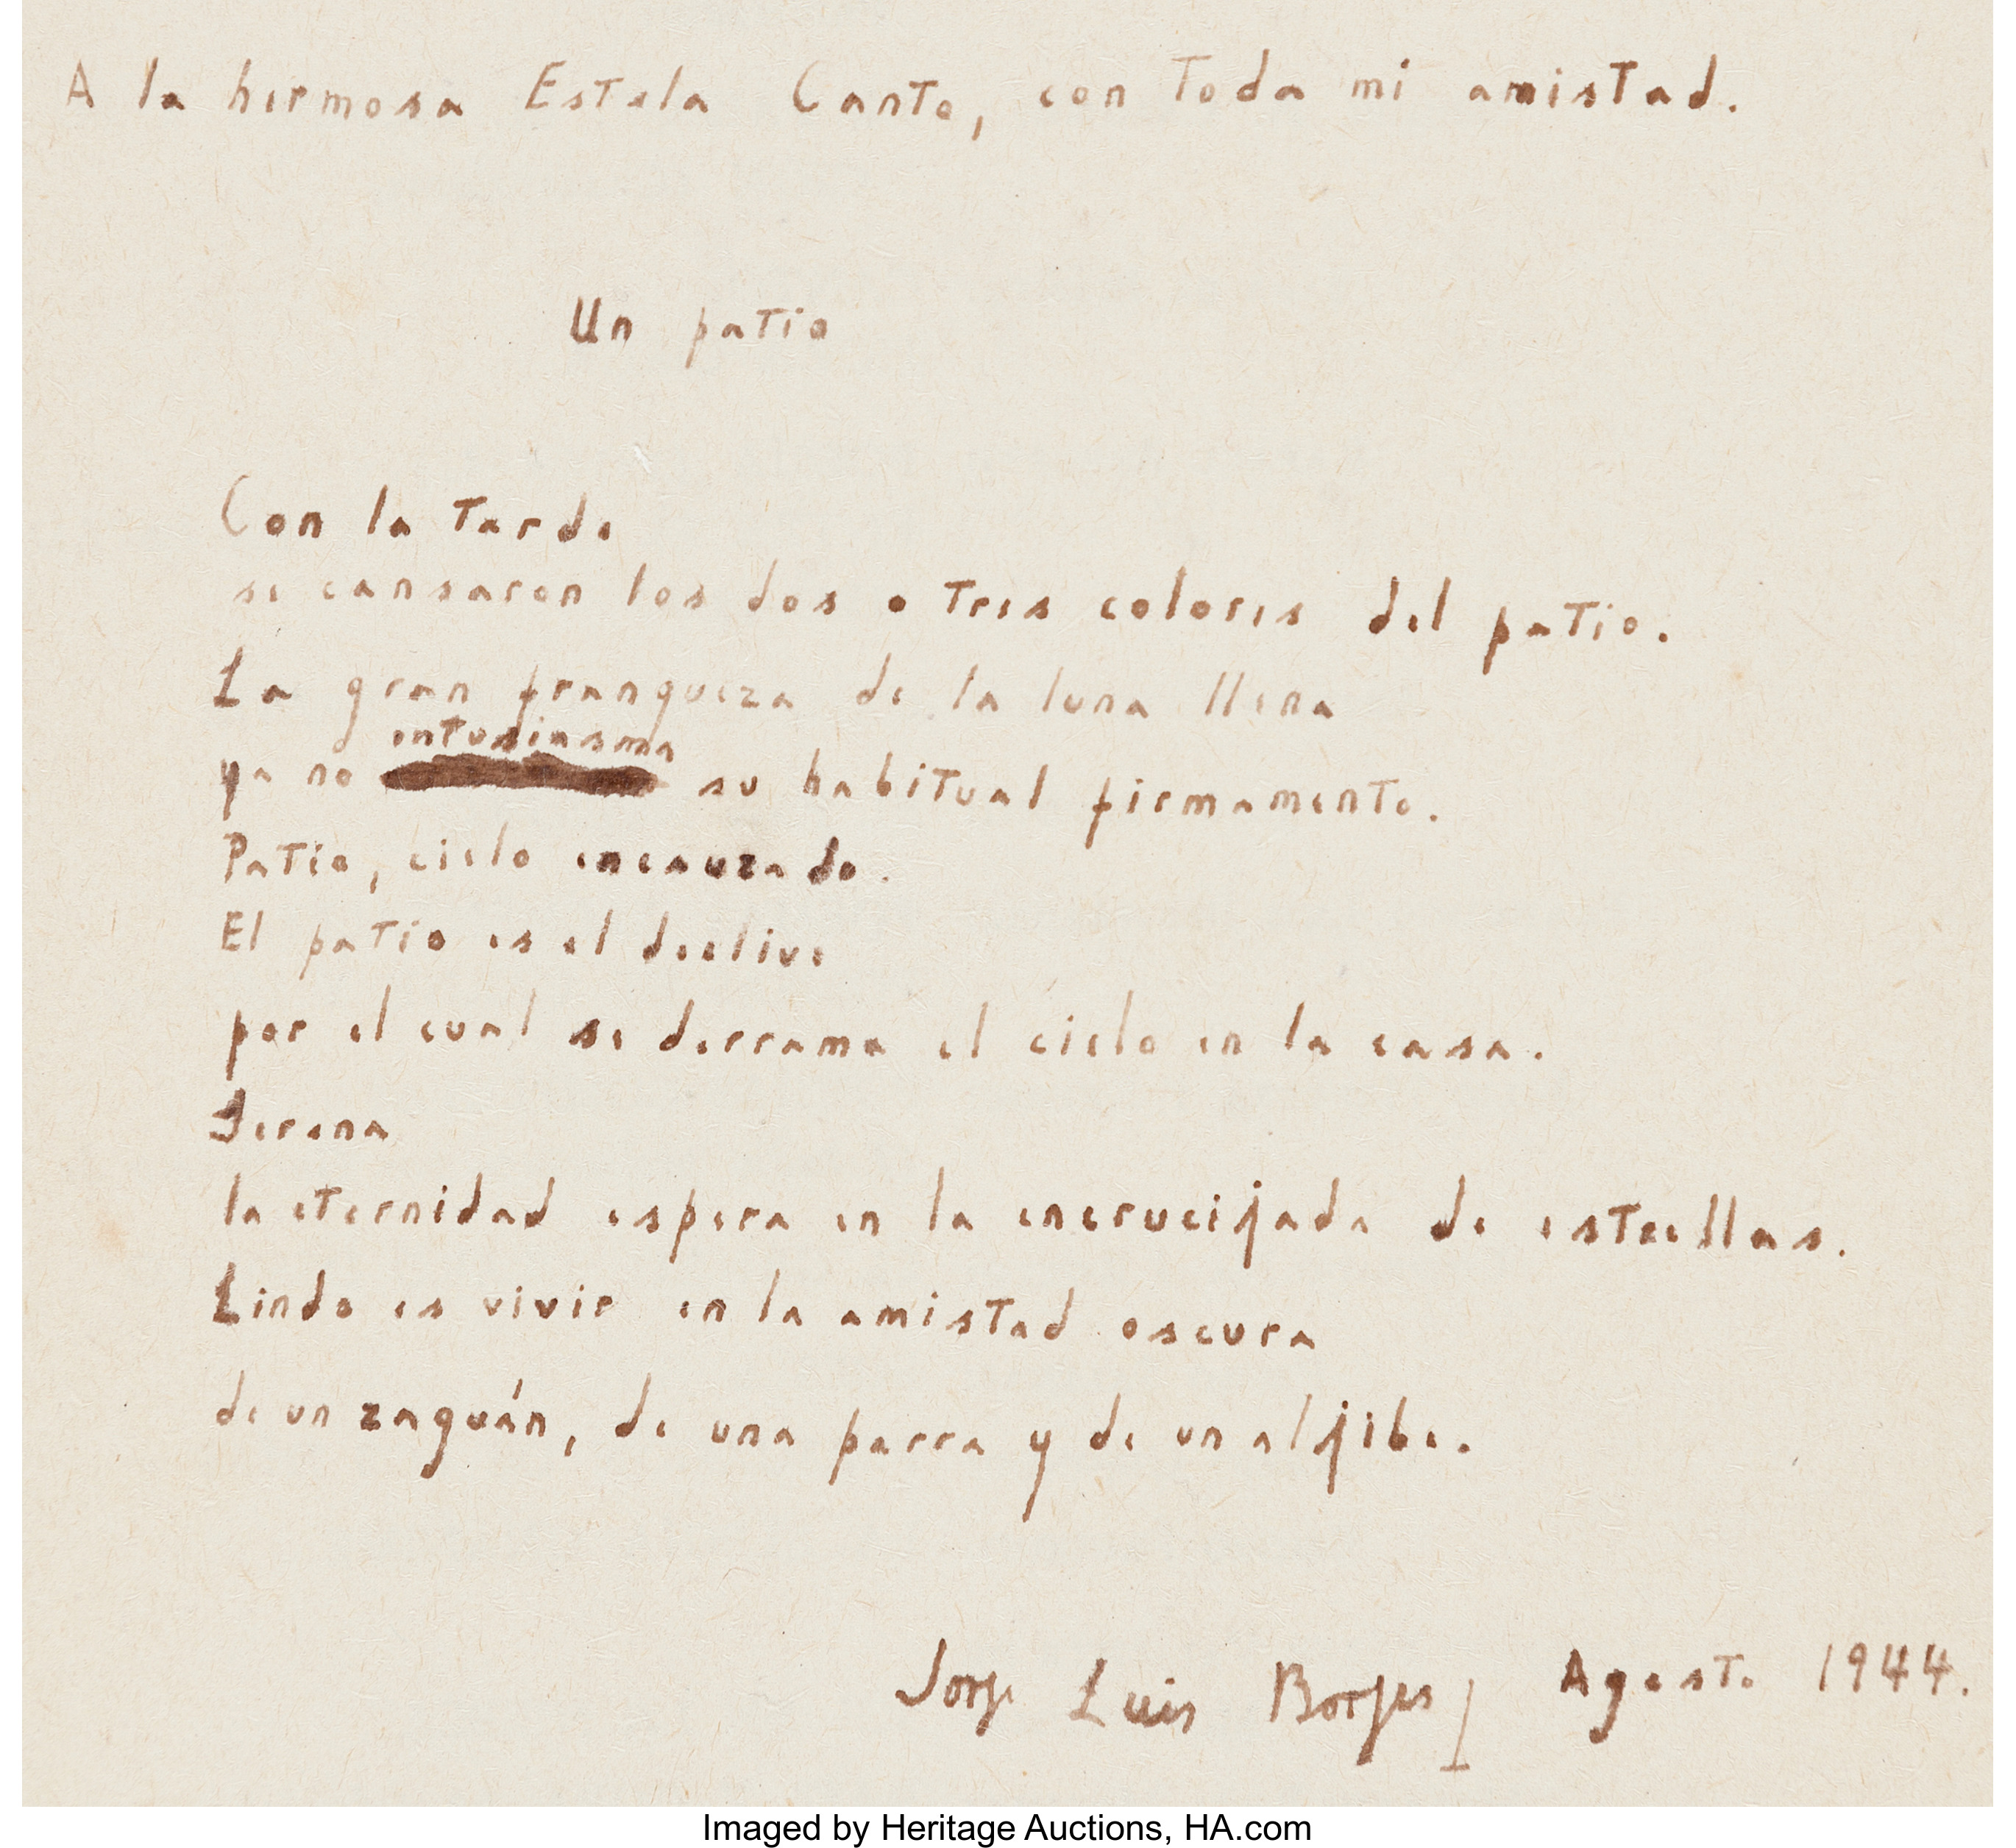 A la hermosa Estela Canto, con toda mi amistad.
Un patio
Con la tarde
se cansaron los dos o tres colores del patio.
La gran franqueza de la luna llena
entusiasma
ya no su habitual firmamento.
Patio, cielo encauzado.
El patio es el declive
por el cual se derrama el cielo en la casa.
Serena
la eternidad espera en la encrucijada de estrellas.
Lindo es vivir en la amistad oscura
de un zaguán, de una parra y de un aljibe.
Jorge Luis Borges Agosto 1944.
Imaged by Heritage Auctions, HA.com